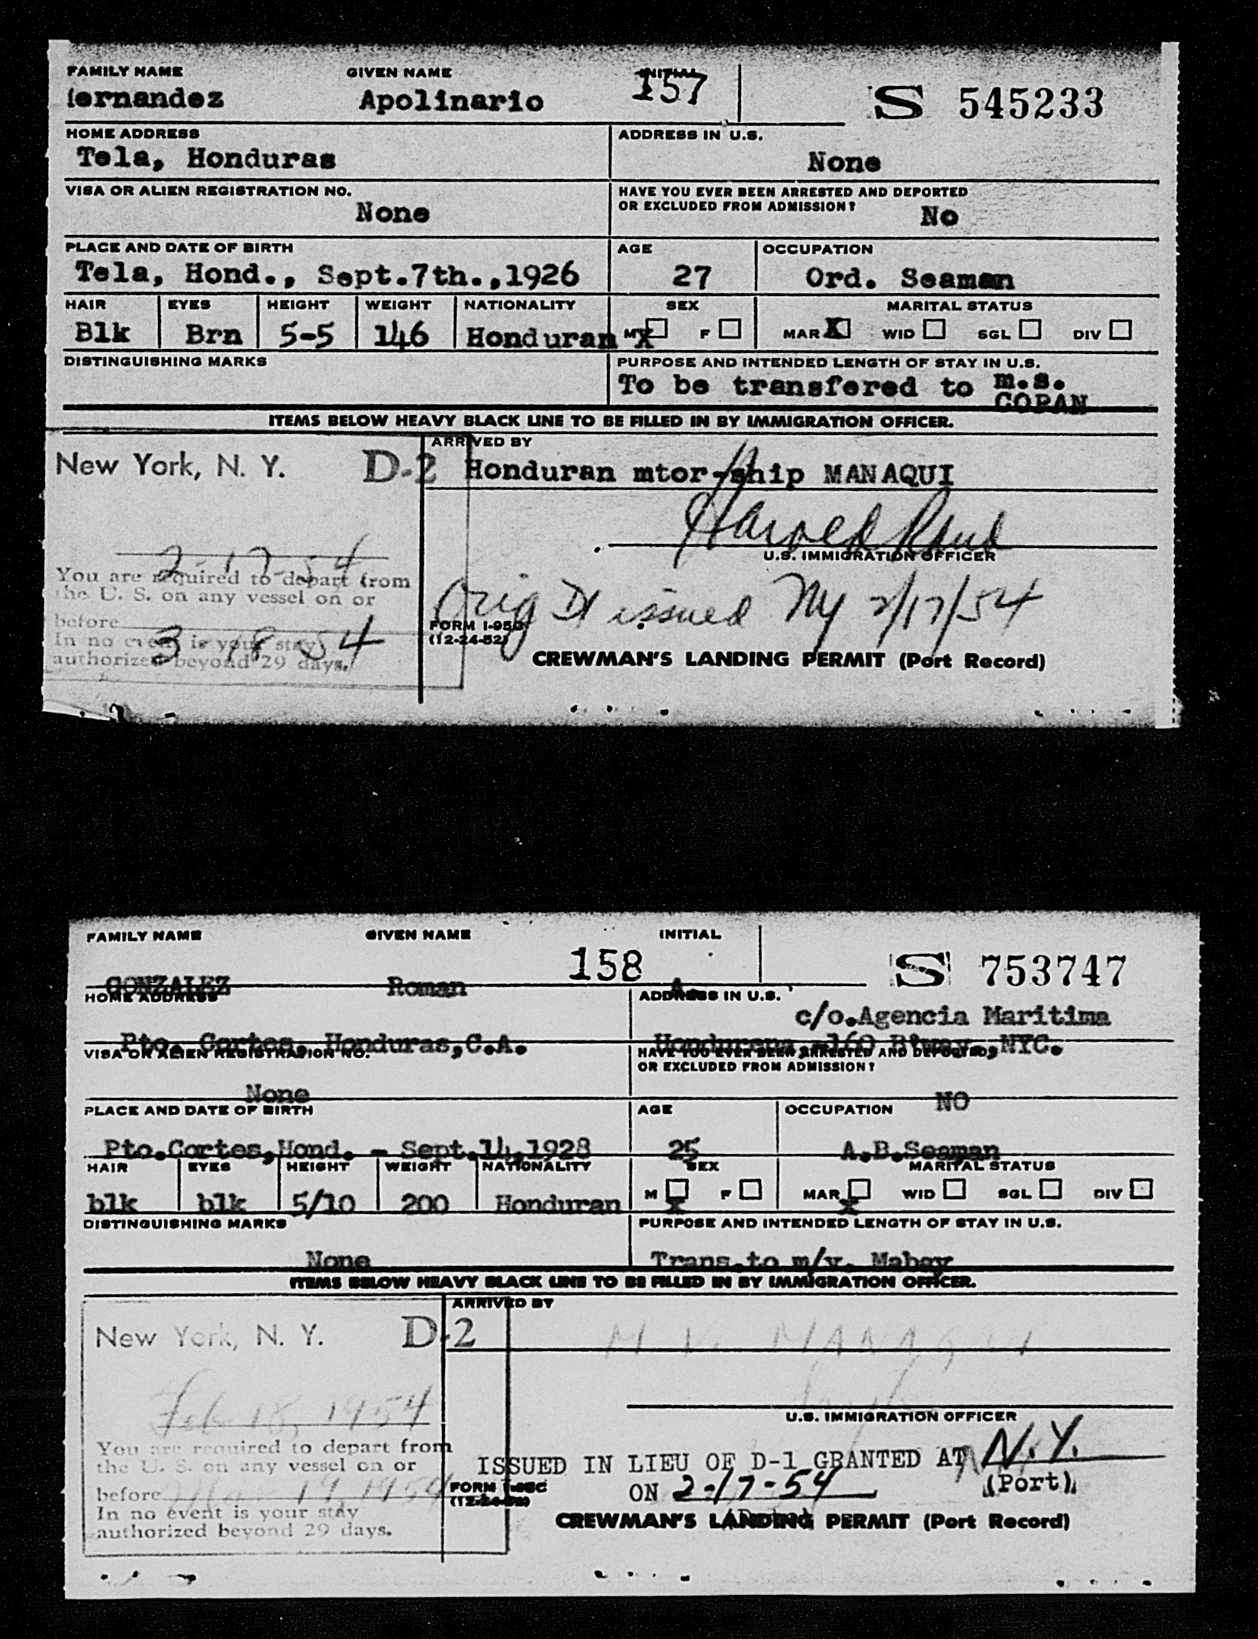 FAMILY NAME GIVEN NAME INITIAL
ernandez Apolinario 157 S 545233
HOME ADDRESS ADDRESS IN U.S.
Tela, Honduras None
VISA OR ALIEN REGISTRATION NO. HAVE YOU EVER BEEN ARRESTED AND DEPORTED
OR EXCLUDED FROM ADMISSION?
None No
PLACE AND DATE OF BIRTH AGE OCCUPATION
Tela, Hond., Sept.7th.,1926 27 Ord. Seaman
HAIR EYES HEIGHT WEIGHT NATIONALITY SEX MARITAL STATUS
Blk Brn 5-5 146 Honduran M X F MAR X WID SGL DIV
DISTINGUISHING MARKS PURPOSE AND INTENDED LENGTH OF STAY IN U.S.
To be transfered to m.s.
COPAN
ITEMS BELOW HEAVY BLACK LINE TO BE FILLED IN BY IMMIGRATION OFFICER.
ARRIVED BY
New York, N. Y. D-2 Honduran mtor-ship MANAQUI
Harold
U.S. IMMIGRATION OFFICER
2-17-54
You are required to depart from
the U. S. on any vessel on or
before 3 18 54
In no event is your stay
authorized beyond 29 days.
Orig D1 issued NY 2/17/54
FORM I-95C
(12-24-52)
CREWMAN'S LANDING PERMIT (Port Record)
FAMILY NAME GIVEN NAME INITIAL
158 S 753747
GONZALEZ Roman A.
HOME ADDRESS ADDRESS IN U.S.
c/o.Agencia Maritima
Pto. Cortes, Honduras,C.A. Hondurena,-160 B'way.,NYC.
VISA OR ALIEN REGISTRATION NO. HAVE YOU EVER BEEN ARRESTED AND DEPORTED
OR EXCLUDED FROM ADMISSION?
None NO
PLACE AND DATE OF BIRTH AGE OCCUPATION
Pto.Cortes,Hond. - Sept.14,1928 25 A.B.Seaman
HAIR EYES HEIGHT WEIGHT NATIONALITY SEX MARITAL STATUS
blk blk 5/10 200 Honduran M X F MAR X WID SGL DIV
DISTINGUISHING MARKS PURPOSE AND INTENDED LENGTH OF STAY IN U.S.
None Trans.to m/v. Mabay
ITEMS BELOW HEAVY BLACK LINE TO BE FILLED IN BY IMMIGRATION OFFICER.
ARRIVED BY
New York, N. Y. D-2 M. V. MANAQUI
U.S. IMMIGRATION OFFICER
Feb 18, 1954
You are required to depart from
the U. S. on any vessel on or
before Mar 19, 1954
In no event is your stay
authorized beyond 29 days.
ISSUED IN LIEU OF D-1 GRANTED AT N.Y.
(Port)
ON 2-17-54
FORM I-95C
(12-24-52)
CREWMAN'S LANDING PERMIT (Port Record)